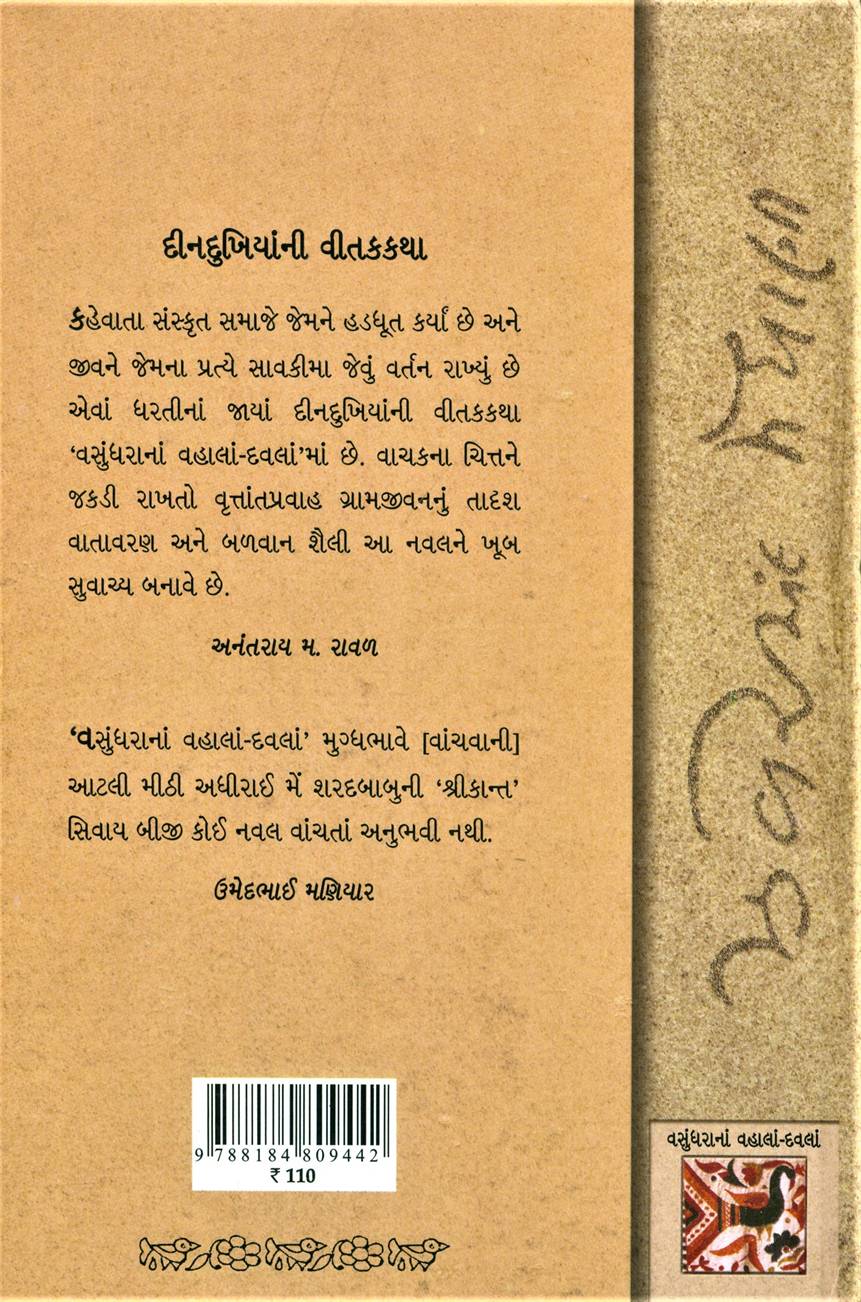 દીનદુખિયાંની વીતકકથા
કહેવાતા સંસ્કૃત સમાજે જેમને હડધૂત કર્યાં છે અને
જીવને જેમના પ્રત્યે સાવકીમા જેવું વર્તન રાખ્યું છે
એવાં ધરતીનાં જાયાં દીનદુખિયાંની વીતકકથા
‘વસુંધરાનાં વહાલાં-દવલાં’માં છે. વાચકના ચિત્તને
જકડી રાખતો વૃત્તાંતપ્રવાહ ગ્રામજીવનનું તાદૃશ
વાતાવરણ અને બળવાન શૈલી આ નવલને ખૂબ
સુવાચ્ય બનાવે છે.
અનંતરાય મ. રાવળ
‘વસુંધરાનાં વહાલાં-દવલાં’ મુગ્ધભાવે [વાંચવાની]
આટલી મીઠી અધીરાઈ મેં શરદબાબુની ‘શ્રીકાન્ત’
સિવાય બીજી કોઈ નવલ વાંચતાં અનુભવી નથી.
ઉમેદભાઈ મણિયાર
9 788184 809442
₹ 110
ઝવેરચંદ મેઘાણી
વસુંધરાનાં વહાલાં-દવલાં